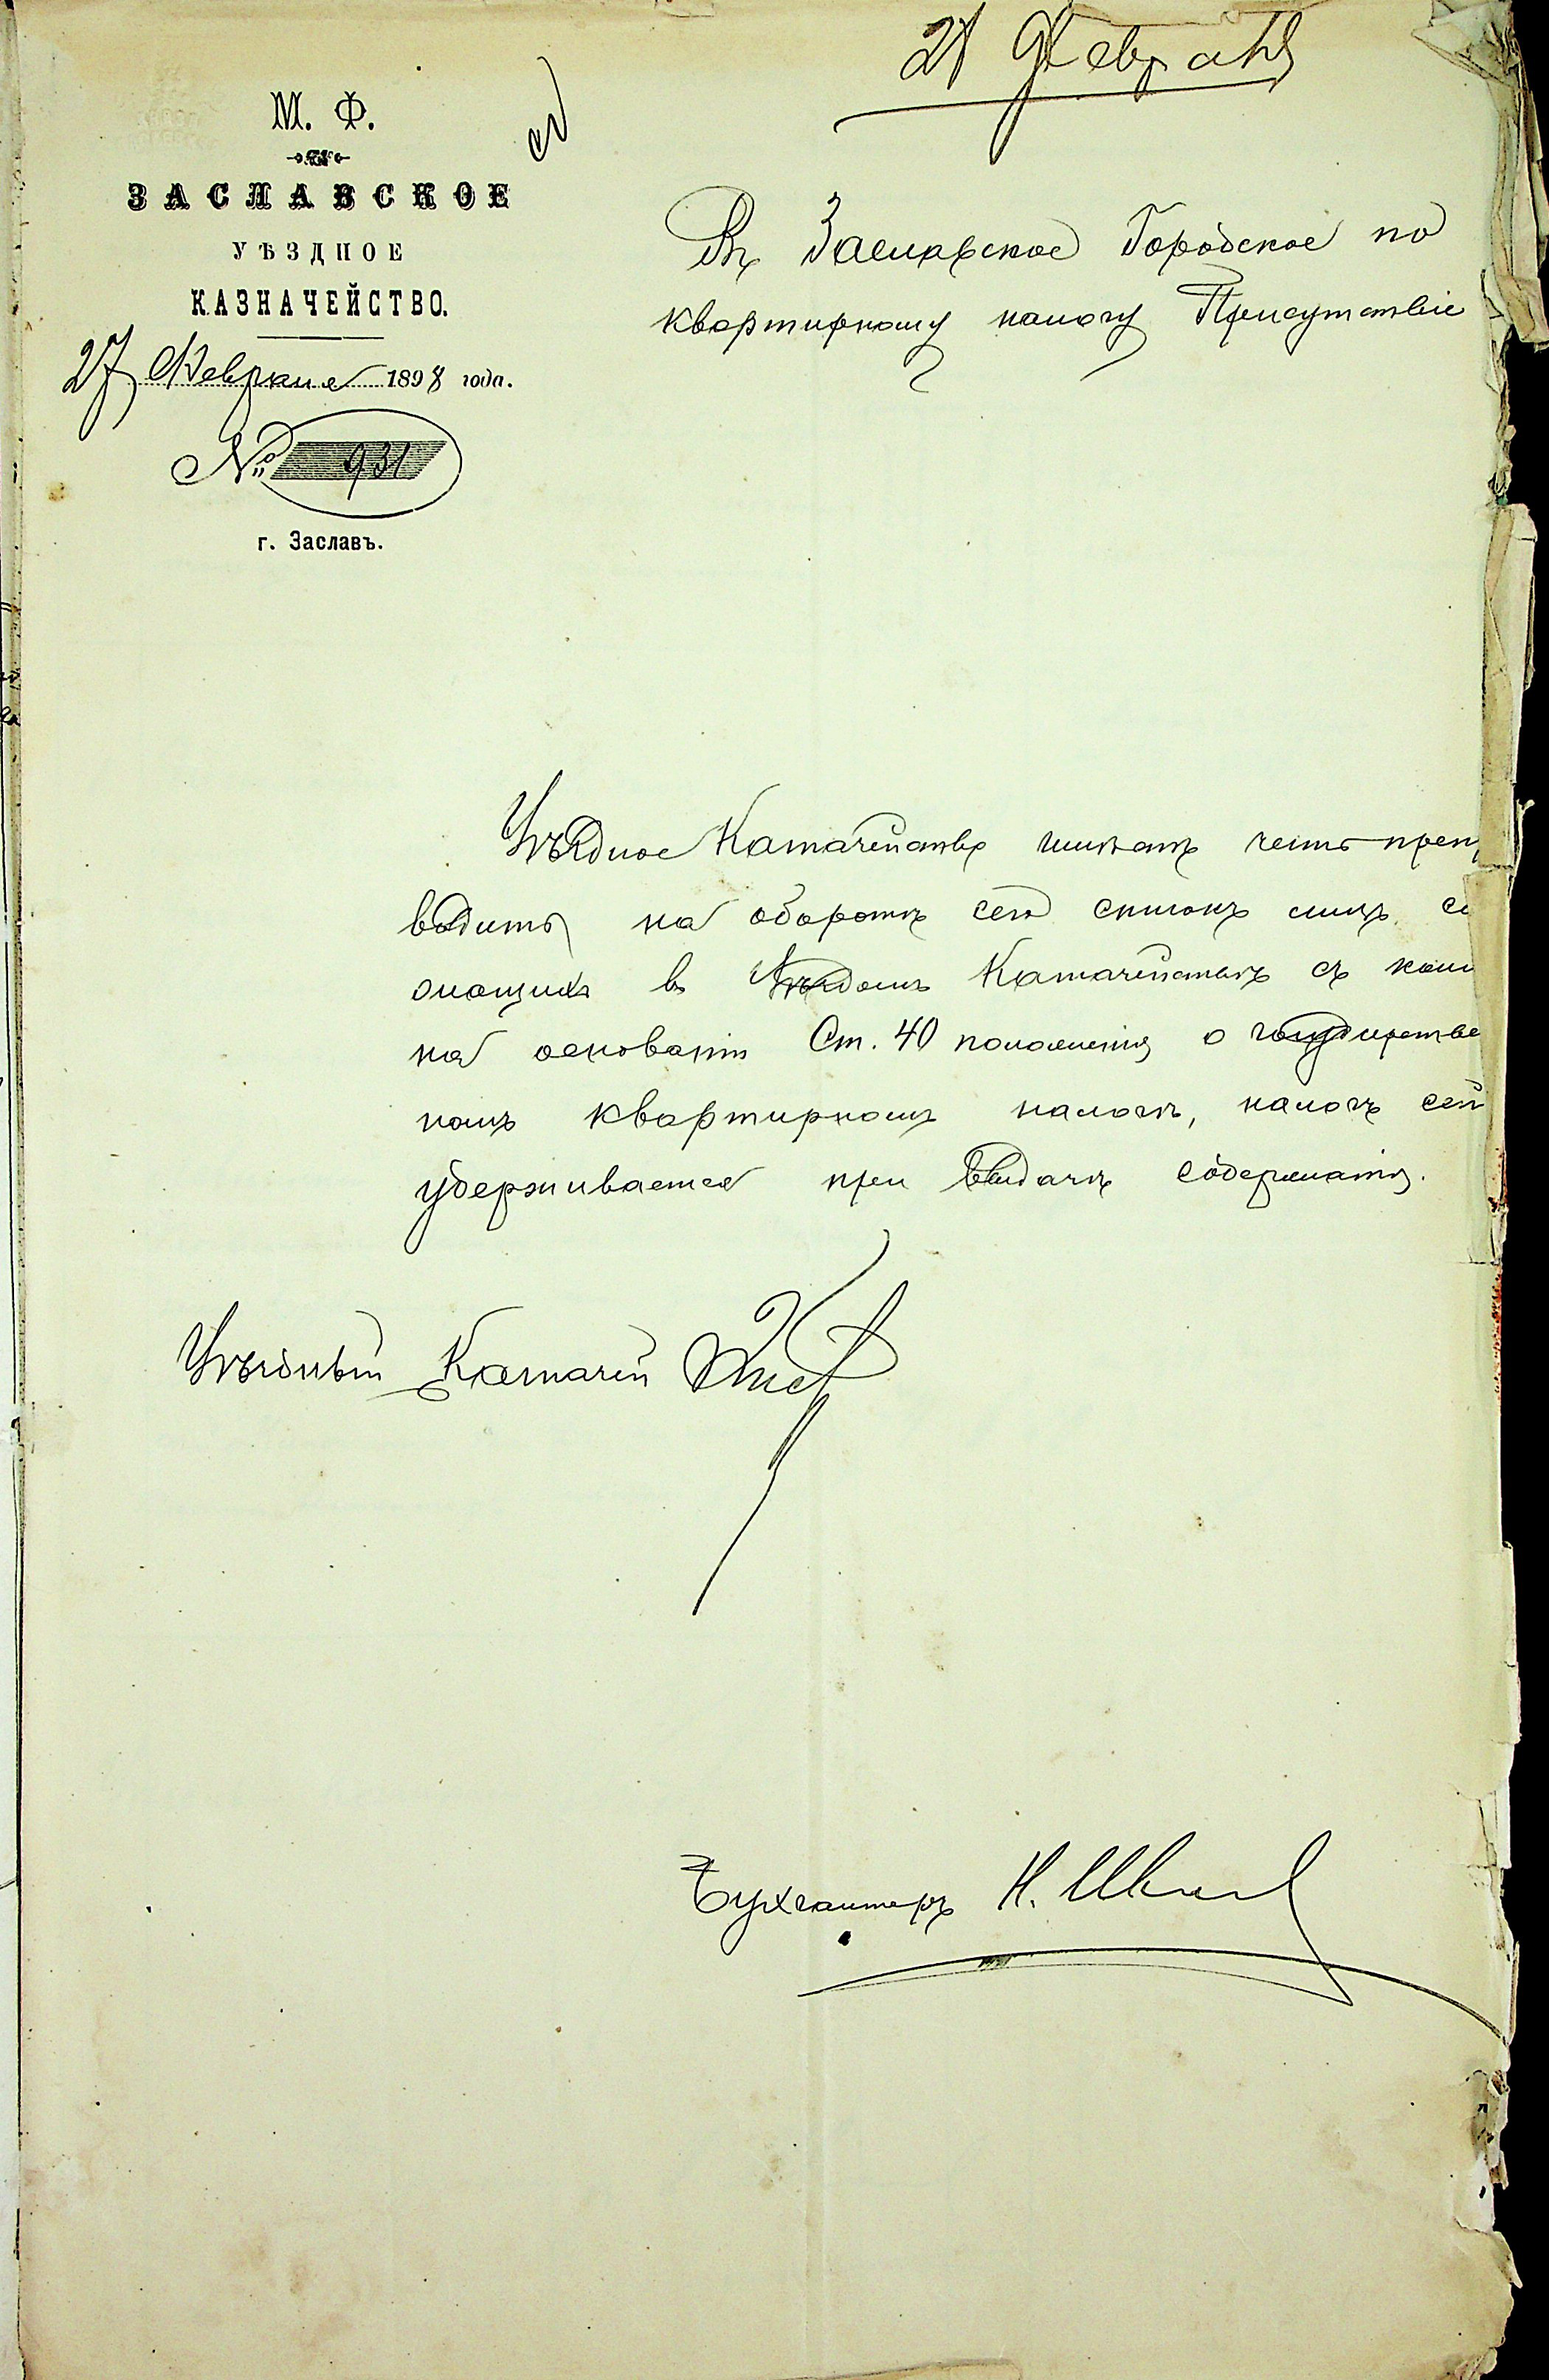 27 Февраля
М. Ф.
ЗАСЛАВСКОЕ
УѢЗДНОЕ
КАЗНАЧЕЙСТВО.
27 Февраля 1898 года.
№ 931
г. Заславъ.
Въ Заславское Городское по
квартирному налогу Присутствіе
Уѣздное Казначейство имѣетъ честь преп
водить на оборотѣ сего списокъ лицъ
в Уѣздномъ Казначействѣ съ коих
на основаніи Ст. 40 положенія о государстве
номъ квартирномъ налогѣ, налогъ сей
удерживается при выдачѣ содержанія.
Уѣздный Казначей
Бухгалтеръ Н.